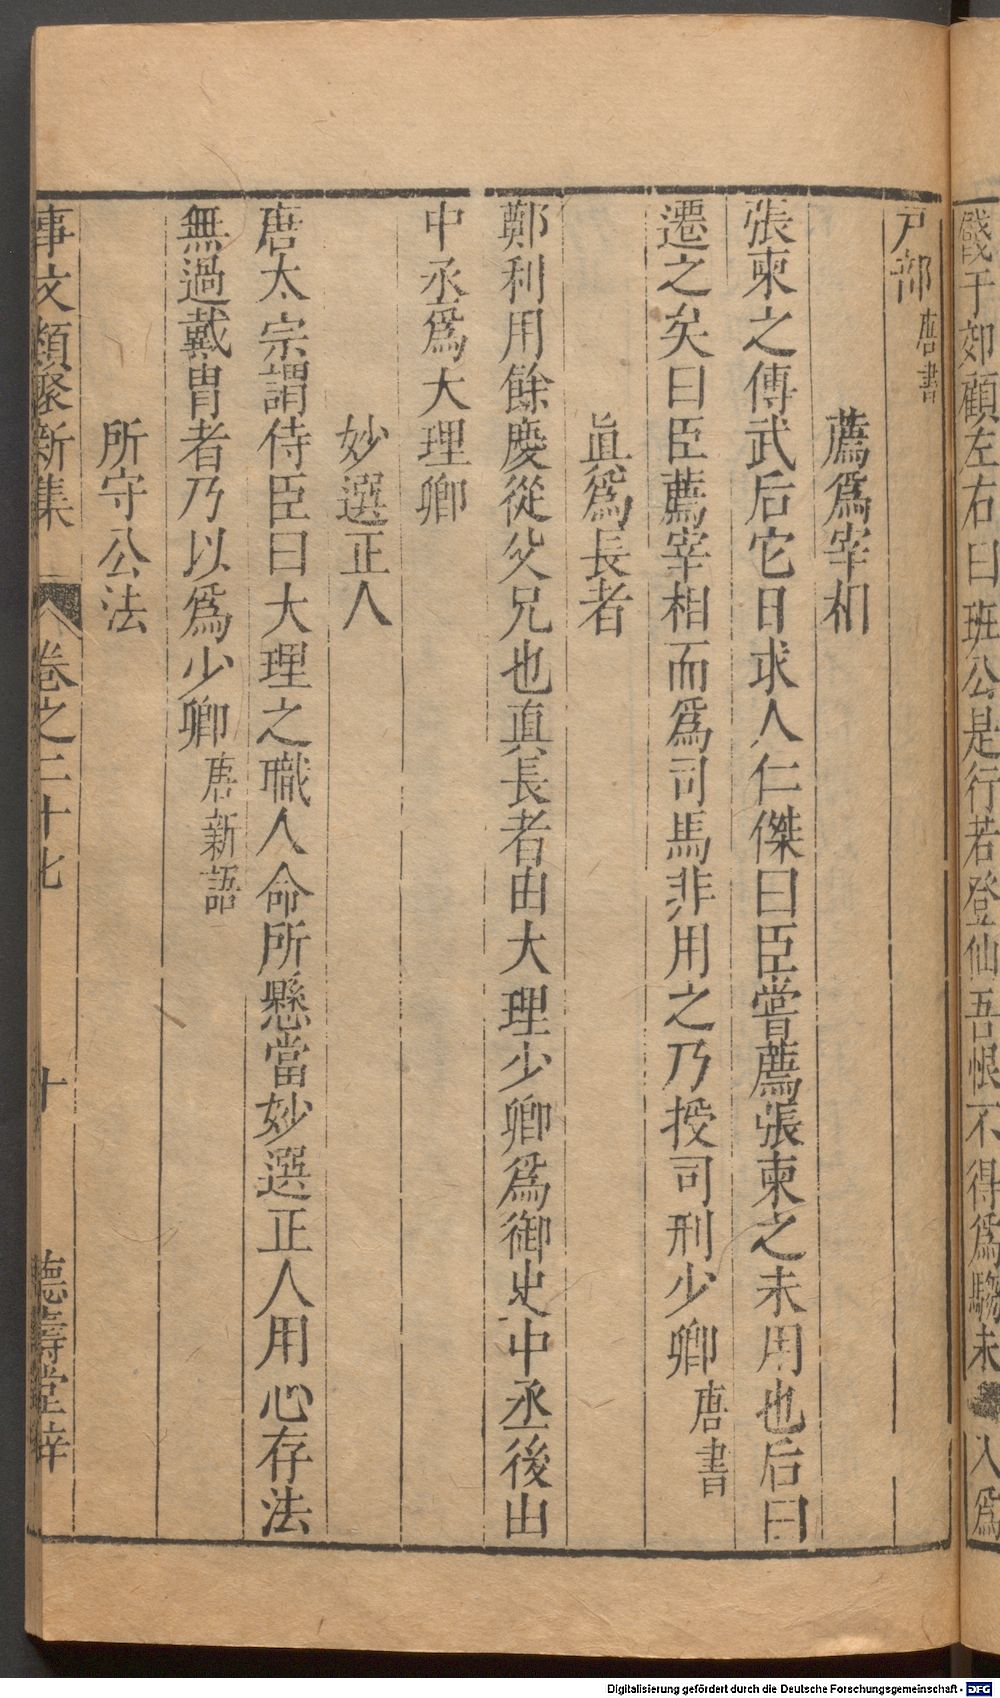 餞于郊顧左右曰班公是行若登仙吾恨不得爲騶未入爲
戸部唐書
薦爲宰相
張柬之傳武后它日求人仁傑曰臣嘗薦張柬之未用也后曰
遷之矣曰臣薦宰相而爲司馬非用之乃授司刑少卿唐書
眞爲長者
鄭利用餘慶從父兄也眞長者由大理少卿爲御史中丞後由
中丞爲大理卿
妙選正人
唐太宗謂侍臣曰大理之職人命所懸當妙選正人用心存法
無過戴胄者乃以爲少卿唐新語
所守公法
事文類聚新集 卷之二十七 十 德壽堂梓
Digitalisierung gefördert durch die Deutsche Forschungsgemeinschaft - DFG